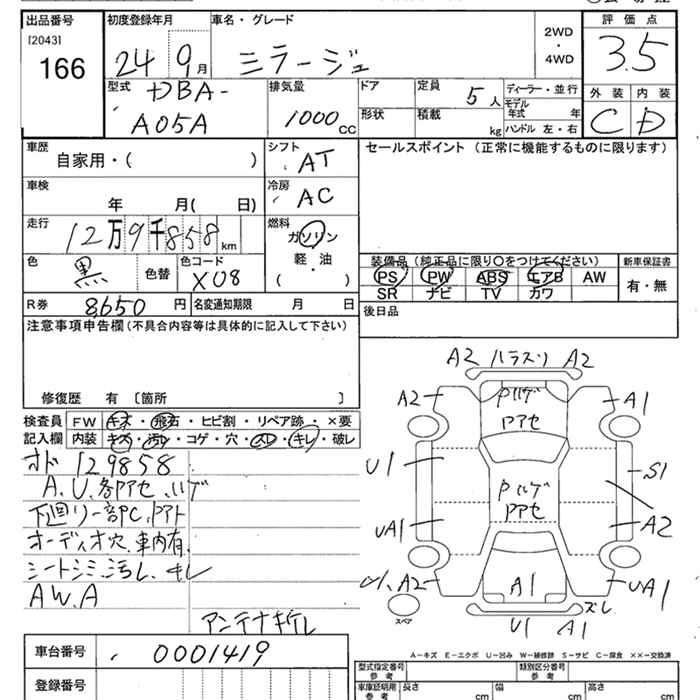 出品番号
[2043]
166
初度登録年月
24 9月
車名・グレード
ミラージュ
2WD
・
4WD
評価点
3.5
型式
DBA-
A05A
排気量
1000cc
ドア
形状
定員
5人
積載
kg
ディーラー・並行
モデル年式 年
ハンドル 左・右
外装 内装
C D
車歴
自家用・( )
シフト
AT
セールスポイント (正常に機能するものに限ります)
車検
年 月( 日)
冷房
AC
走行
12万9千858km
燃料
ガソリン
軽・油
( )
色
黒
色替
色コード
X08
装備品(純正品に限り○をつけてください)
PS PW ABS エアB AW
SR ナビ TV カワ
新車保証書
有・無
R券 8,650円
名変通知期限 月 日
後日品
注意事項申告欄(不具合内容等は具体的に記入して下さい)
修復歴 有 [箇所 ]
検査員
記入欄
FW キズ・飛石・ヒビ割・リペア跡・×要
内装 キズ・汚れ・コゲ・穴・スレ・キレ・破レ
オド 129858
A.U.各部アセ.ハゲ
下廻リ一部PC.Pアト
オーディオ穴.車内有.
シートシミ.汚レ.キレ
A W.A
アンテナキレ
A2 ハラスリ A2
A2
Pハゲ
Pアセ
A1
U1
S1
Pハゲ
Pアセ
UA1
A2
A2
A1
UA1
ズレ
U1 A1
スペア
A-キズ E-エクボ U-凹み W-補修跡 S-サビ C-腐食 ××-交換済
車台番号
0001419
登録番号
型式指定番号
参考
類別区分番号
参考
車庫証明用
参考
長さ cm
幅 cm
高さ cm